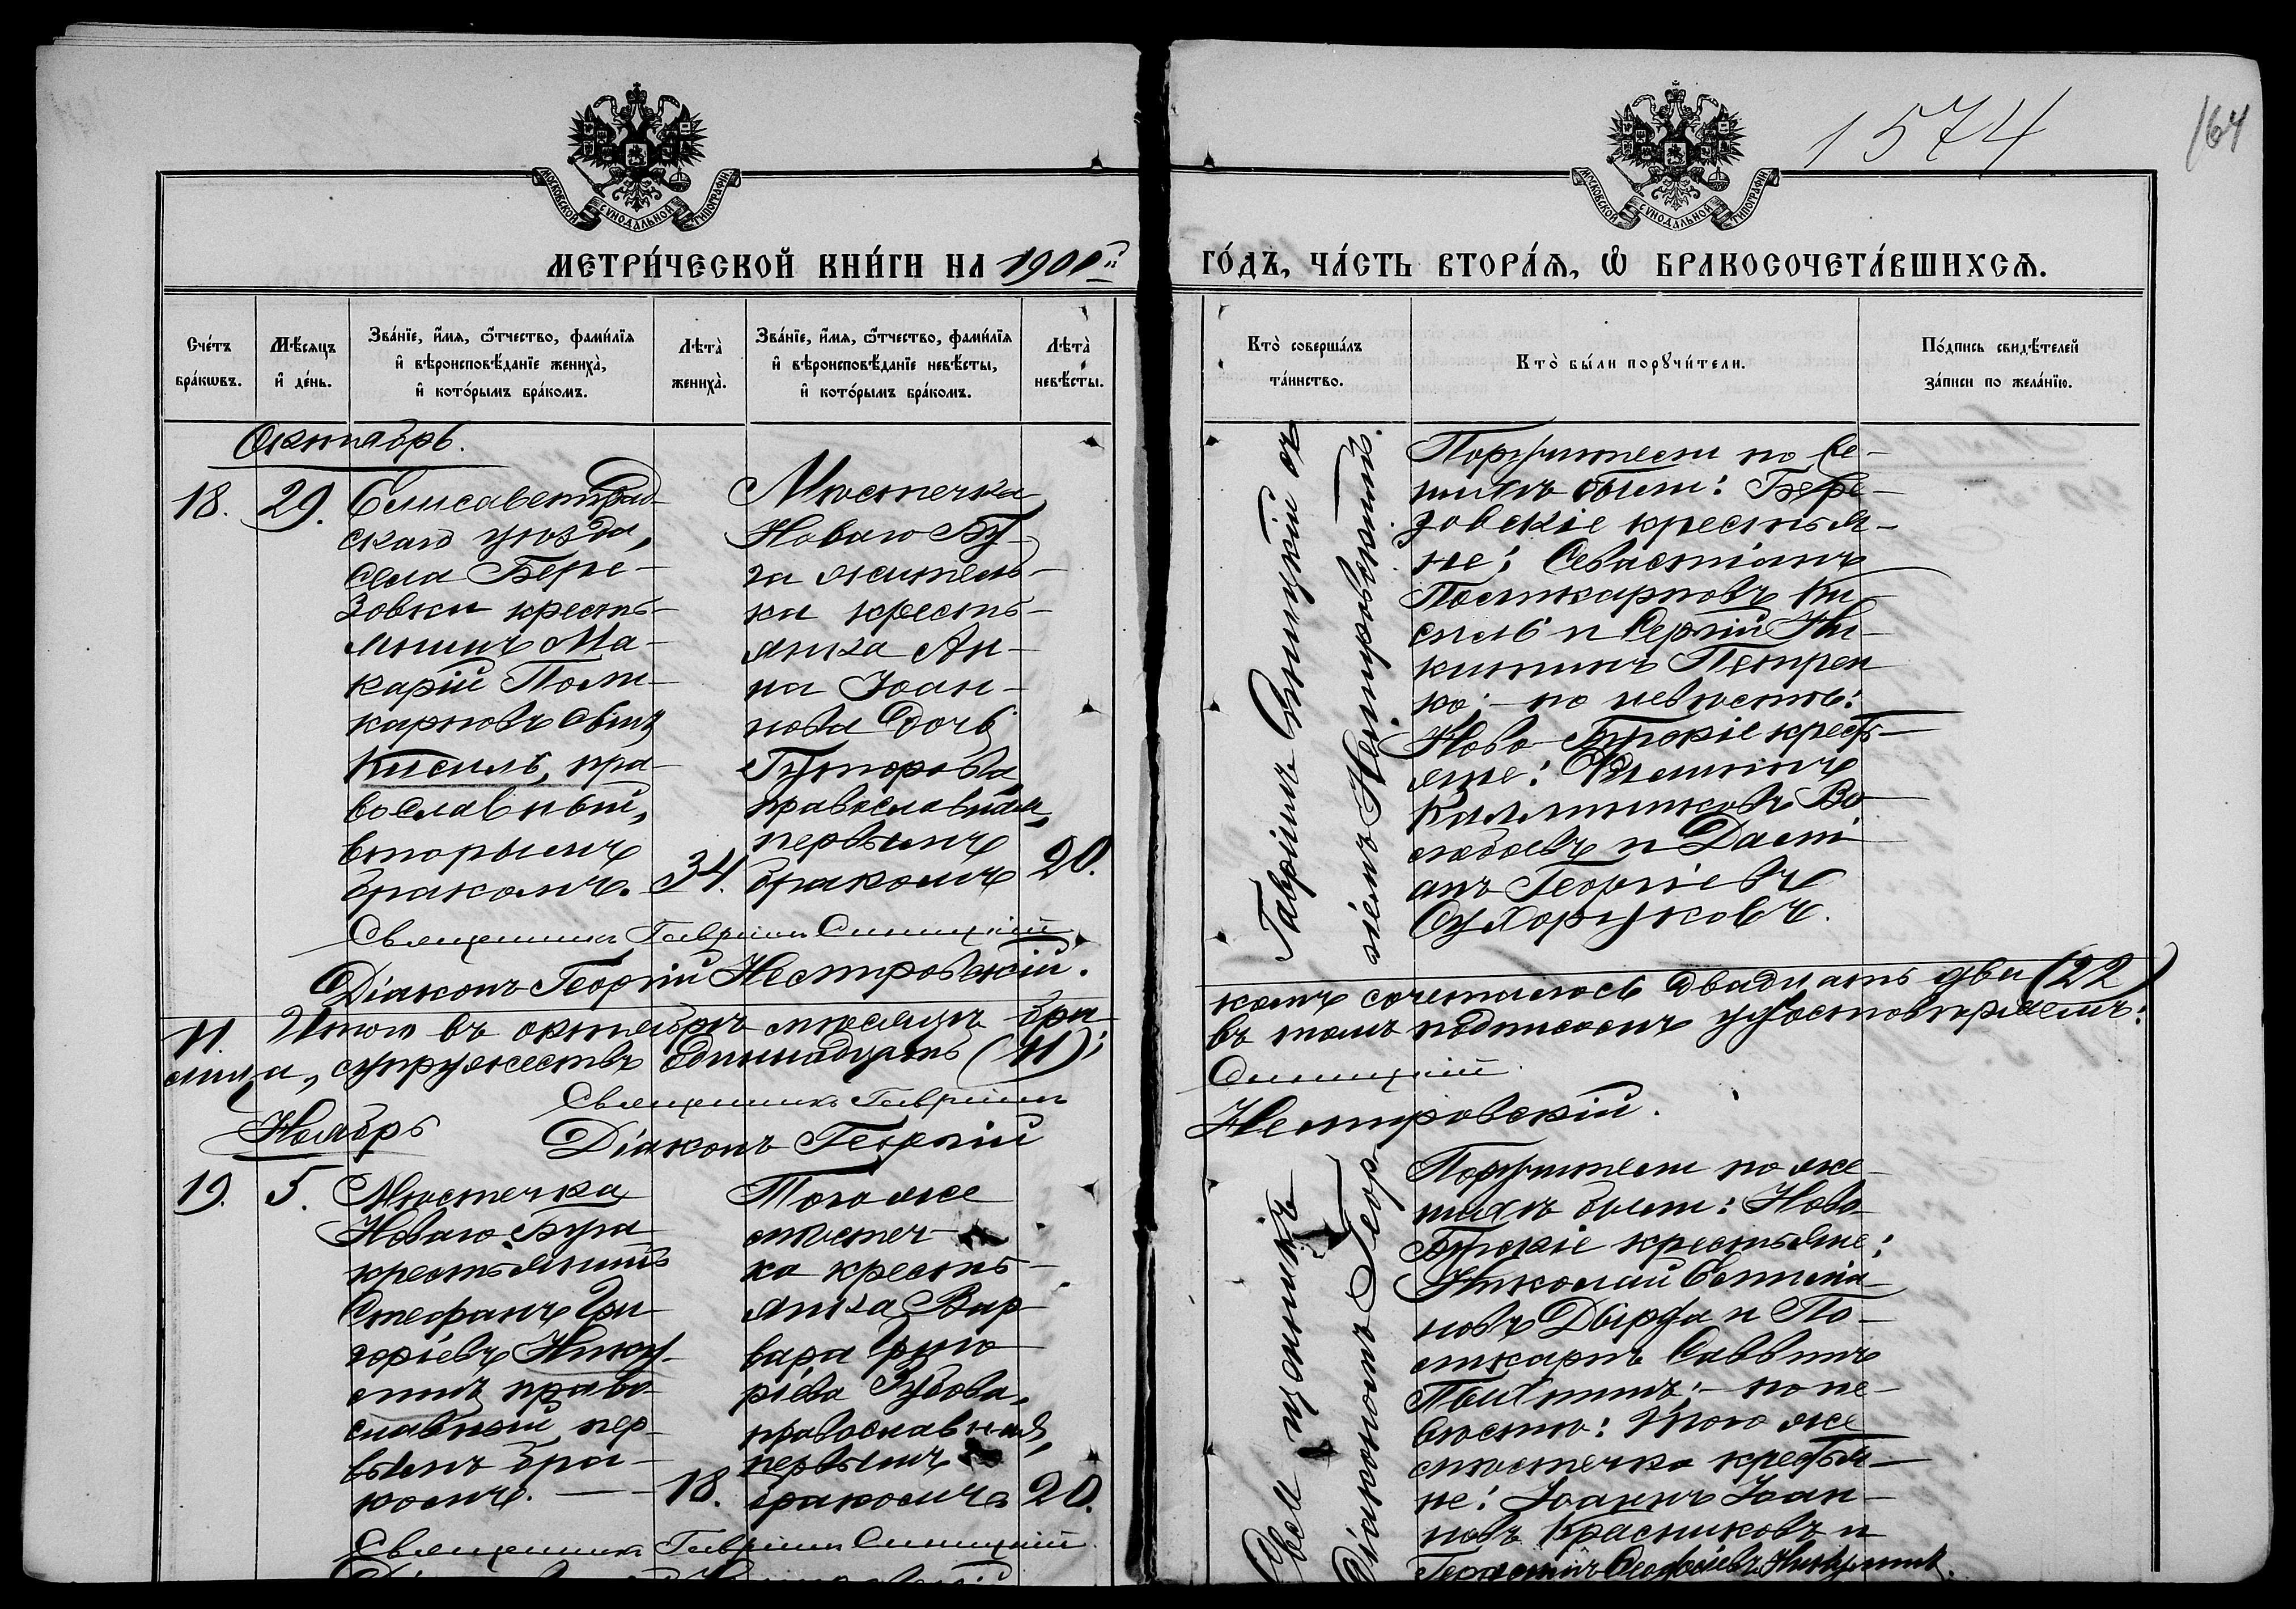 1574
164
МОСКОВСКОЙ СѴНОДАЛЬНОЙ ТИПОГРАФИИ
МОСКОВСКОЙ СѴНОДАЛЬНОЙ ТИПОГРАФИИ
МЕТРИ́ЧЕСКОЙ КНИ́ГИ НА 1901й
ГО́ДЪ, ЧА́СТЬ ВТОРА́Я, Ѽ БРАКОСОЧЕТА́ВШИХСЯ.
Сче́тъ бра́кѡвъ.
Мѣ́сяцъ и҆ де́нь.
Зва́нїе, и҆́мя, ѻ҆́тчество, фами́лїя и҆ вѣроисповѣ́данїе жениха̀, и҆ кото́рымъ бра́комъ.
Лѣта̀ жениха̀.
Зва́нїе, и҆́мя, ѻ҆́тчество, фами́лїя и҆ вѣроисповѣ́данїе невѣ́сты, и҆ кото́рымъ бра́комъ.
Лѣта̀ невѣ́сты.
Кто̀ соверша́лъ та́инство.
Кто̀ бы́ли порꙋчи́тели.
По́дпись свидѣ́телей за́писи по жела́нїю.
Октябрь.
18.
29.
Елисаветград-
скаго уѣзда,
села Бере-
зовки кресть-
янинъ Ма-
карій Поли-
карповъ сынъ
Кисиль, пра-
вославный,
вторымъ
бракомъ.
34.
Мѣстечка
Новаго Бу-
га житель-
ка кресть-
янка Ан-
на Іоан-
нова дочь
Гуторова,
православная,
первымъ
бракомъ
20.
Гавріилъ Синицкій съ
гіемъ Нестеровскимъ.
Поручители по же-
нихѣ были: Бере-
зовскіе крестья-
не: Севастіанъ
Поликарповъ Ки-
силь и Сергій Ни-
китинъ Петрен
ко; по невѣстѣ:
Ново-Бугскіе кресть-
яне:
и Даміанъ
Георгіевъ
Сухоруковъ.
Священникъ Гавріилъ Синицкій
Діаконъ Георгій Нестеровскій.
11.
Итого въ октябрѣ мѣсяцѣ бра
комъ сочеталось двадцать два (22)
лица, супружествъ одиннадцать (11);
въ томъ подписомъ удостовѣряемъ:
Священникъ Гавріилъ
Синицкій
Діаконъ Георгій
Нестеровскій.
Ноябрь
19.
5.
Мѣстечка
Новаго-Буга
крестьянинъ
Стефанъ Гри-
горіевъ Нику-
линъ, право-
славный, пер-
вымъ бра-
комъ.
18.
Того же
мѣстеч-
ка кресть-
янка Вар-
вара Григо
ріева Зубова,
православная,
первымъ
бракомъ
20.
Священникъ
Діакономъ Геор-
Поручители по же-
нихѣ были: Ново-
Бугскіе крестьяне:
Николай
новъ Дырда и По-
ликарпъ Саввинъ
по не-
вѣстѣ: того же
мѣстечка крестья-
не: Іоаннъ Іоан-
новъ Красниковъ и
Герасимъ Никулинъ.
Священникъ Гавріилъ Синицкій